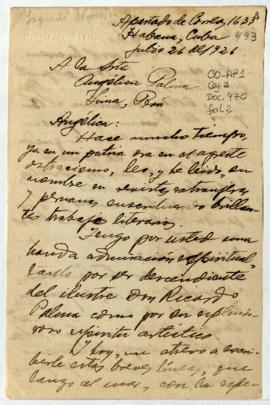 Apartado de Correo, 1633
Habana, Cuba
Julio 26 del 1926
493
A la Srta
Angélica Palma
Lima, Perú
CO-AP1
Caj 3
Doc 490
fol. 2
Angélica:
Hace mucho tiempo,
ya en mi patria ora en el agreste
ostracismo, leo, y he leido, su
nombre en revistas extranjeras
y peruanas, suscribiendo brillan-
tes trabajos literarios.
Tengo por usted una
honda admiración espiritual
tanto por ser descendiente
del ilustre Don Ricardo
Palma como por su esplendo-
roso espíritu artístico
Y hoy, me atrevo a escri-
birle estas breves líneas, que
lanzo al mar, con la